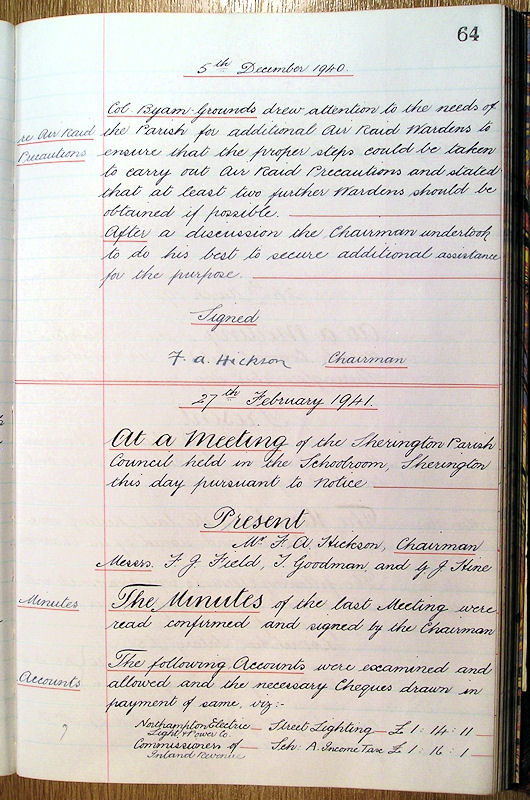 64
5th December 1940.
re Air Raid
Precautions
Col. Byam-Grounds drew attention to the needs of
the Parish for additional Air Raid Wardens to
ensure that the proper steps could be taken
to carry out Air Raid Precautions and stated
that at least two further Wardens should be
obtained if possible.
After a discussion the Chairman undertook
to do his best to secure additional assistance
for the purpose.
Signed
F. A. Hickson Chairman
27th February 1941.
At a Meeting of the Sherington Parish
Council held in the Schoolroom, Sherington
this day pursuant to Notice
Present
Mr. F. A. Hickson, Chairman
Messrs. F J Field, T. Goodman and G J Hine
Minutes
The Minutes of the last Meeting were
read confirmed and signed by the Chairman
Accounts
The following Accounts were examined and
allowed and the necessary Cheques drawn in
payment of same, viz:-
Northampton Electric
Light & Power Co. Street Lighting £1 : 14 : 11
Commissioners of
Inland Revenue Sch: A. Income Tax £1 : 16 : 1